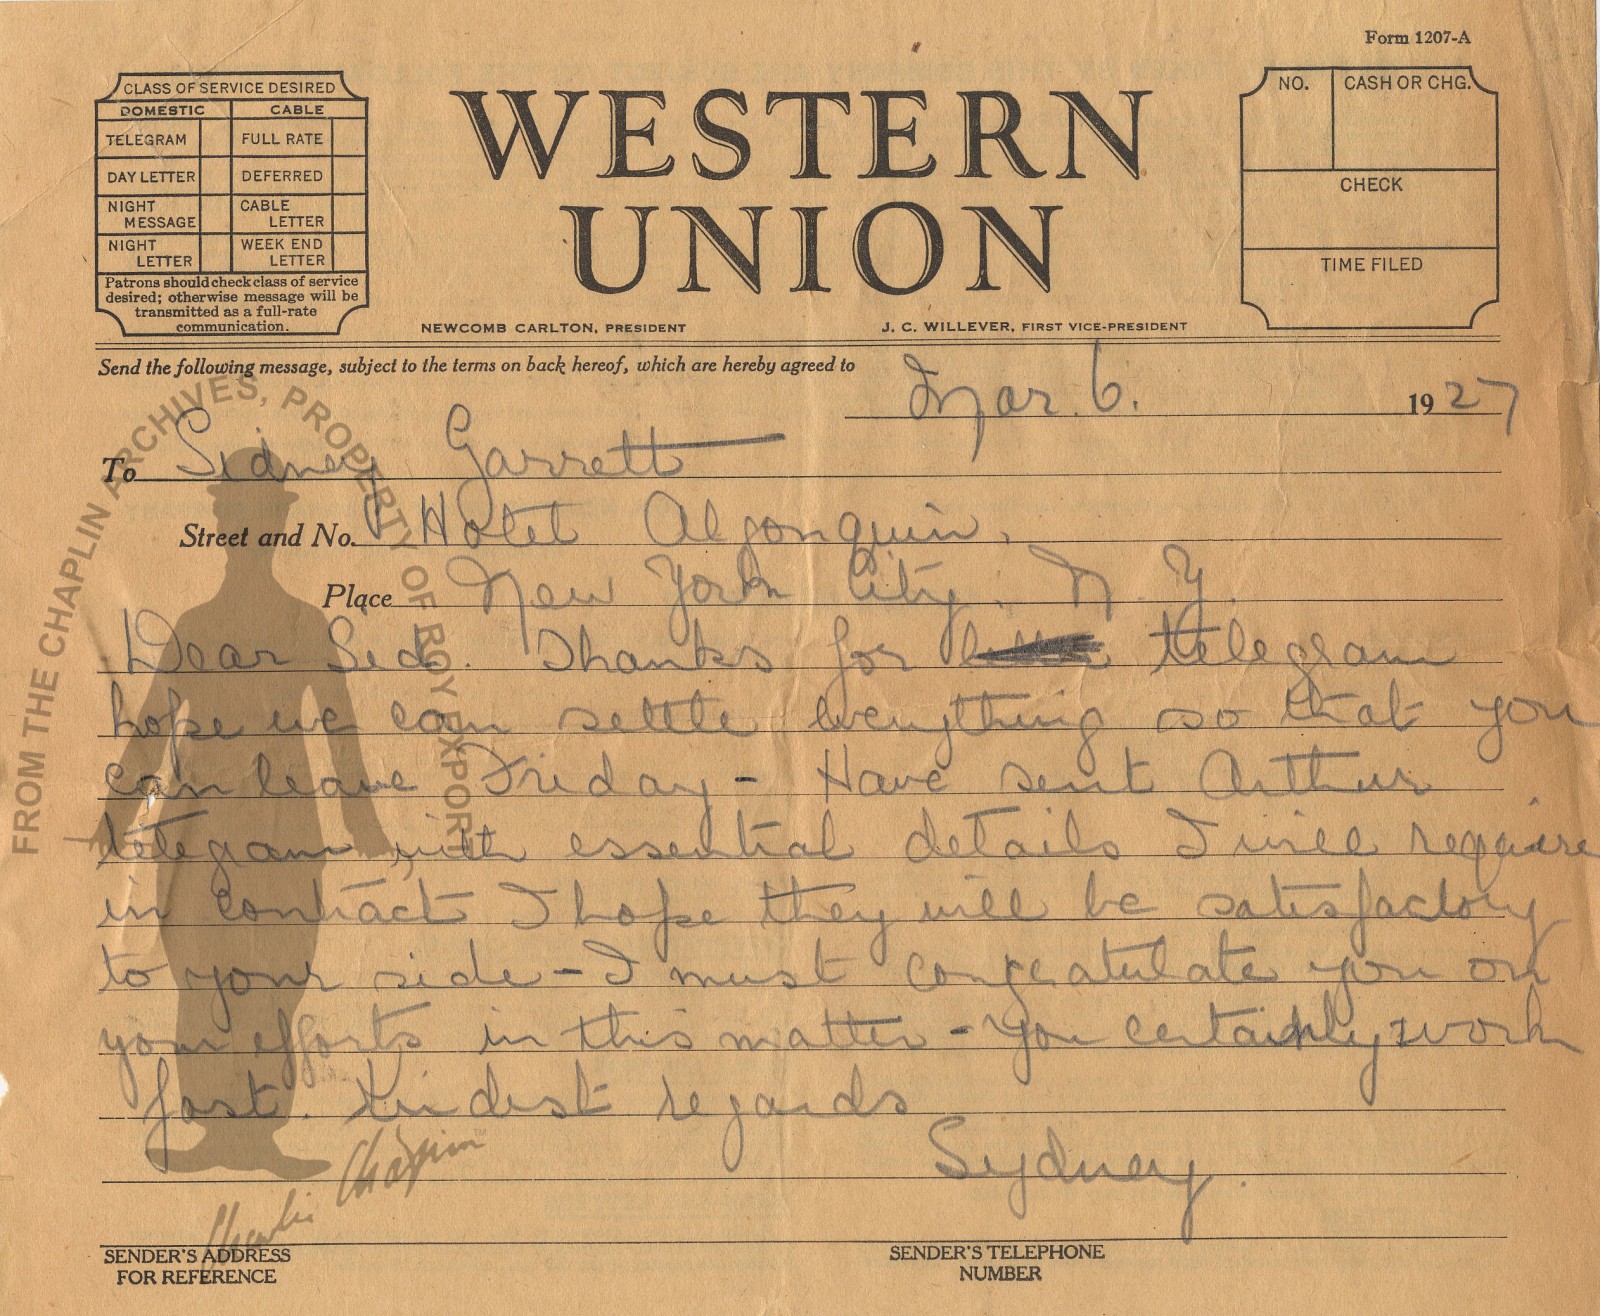 Form 1207-A
CLASS OF SERVICE DESIRED
DOMESTIC CABLE
TELEGRAM FULL RATE
DAY LETTER DEFERRED
NIGHT MESSAGE CABLE LETTER
NIGHT LETTER WEEK END LETTER
Patrons should check class of service
desired; otherwise message will be
transmitted as a full-rate
communication.
WESTERN
UNION
NEWCOMB CARLTON, PRESIDENT J. C. WILLEVER, FIRST VICE-PRESIDENT
NO. CASH OR CHG.
CHECK
TIME FILED
Send the following message, subject to the terms on back hereof, which are hereby agreed to
Mar. 6. 1927
To Sidney Garrett
Street and No. Hotel Algonquin.
Place New York City. N. Y.
Dear Sid. Thanks for telegram
hope we can settle everything so that you
can leave Friday - Have sent Arthur
telegam with essential details I will require
in contract I hope they will be satisfactory
to your side - I must congratulate you on
your efforts in this matter - You certainly work
fast. Kindest regards
Sydney.
SENDER'S ADDRESS
FOR REFERENCE
SENDER'S TELEPHONE
NUMBER
FROM THE CHAPLIN ARCHIVES, PROPERTY OF ROY EXPORT
Charlie Chaplin™